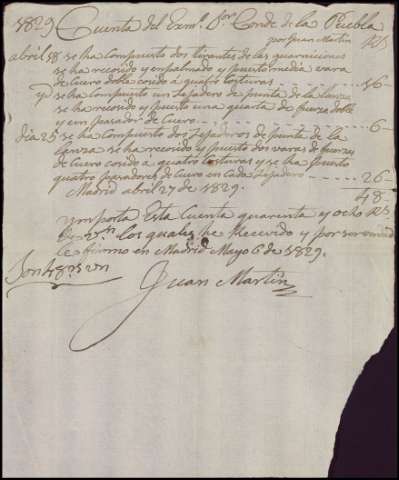 1829 Cuenta del Exmo. Sor. Conde de la Puebla
por Juan Martin Rs
abril 18 se ha compuesto dos tirantes de las guarniciones
se ha recosido y enpalmado y puesto media vara
de cuero doble cosido á quatro costuras 16
Yd se ha compuesto un Lejadero de punta de la lanza
se ha recosido y puesto una quarta de fuerza doble
y un pasador de Cuero 6
dia 25 se ha compuesto dos Lejaderos de punta de la
lanza se ha recosido y puesto dos varas de fuerzas
de Cuero cosido á quatro costuras y se ha puesto
quatro pasadores de Cuero en Cada Lejadero 26
Madrid abril 27 de 1829. 48
ymporta Esta Cuenta quarenta y ocho Rs
de vn. los quales he Recevido y por ser verdad
lo firmo en Madrid Mayo 6 de 1829.
Son 48 rs vn
Juan Martin